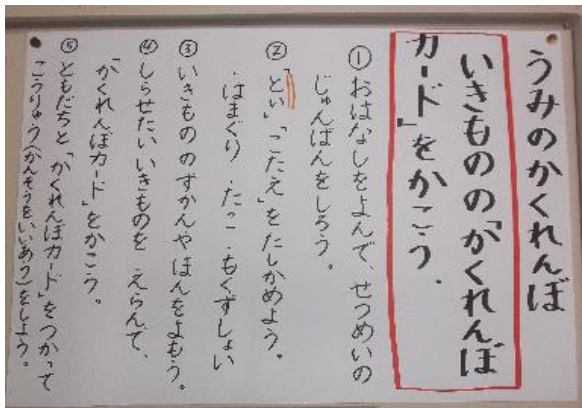 うみのかくれんぼ
いきものの「かくれんぼ
カード」をかこう.
①おはなしをよんで、せつめいの
じゅんばんをしろう。
②「とい」「こたえ」をたしかめよう。
・はまぐり・たこ・もくずしょい
③いきもののずかんやほんをよもう。
④しらせたいいきものを えらんで、
「かくれんぼカード」をかこう。
⑤ともだちと「かくれんぼカード」をつかって
こうりゅう(かんそうをいいあう)をしよう。